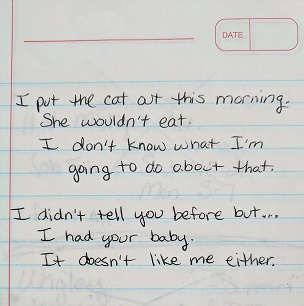 DATE
I put the cat out this morning.
She wouldn't eat.
I don't know what I'm
going to do about that.
I didn't tell you before but...
I had your baby.
It doesn't like me either.